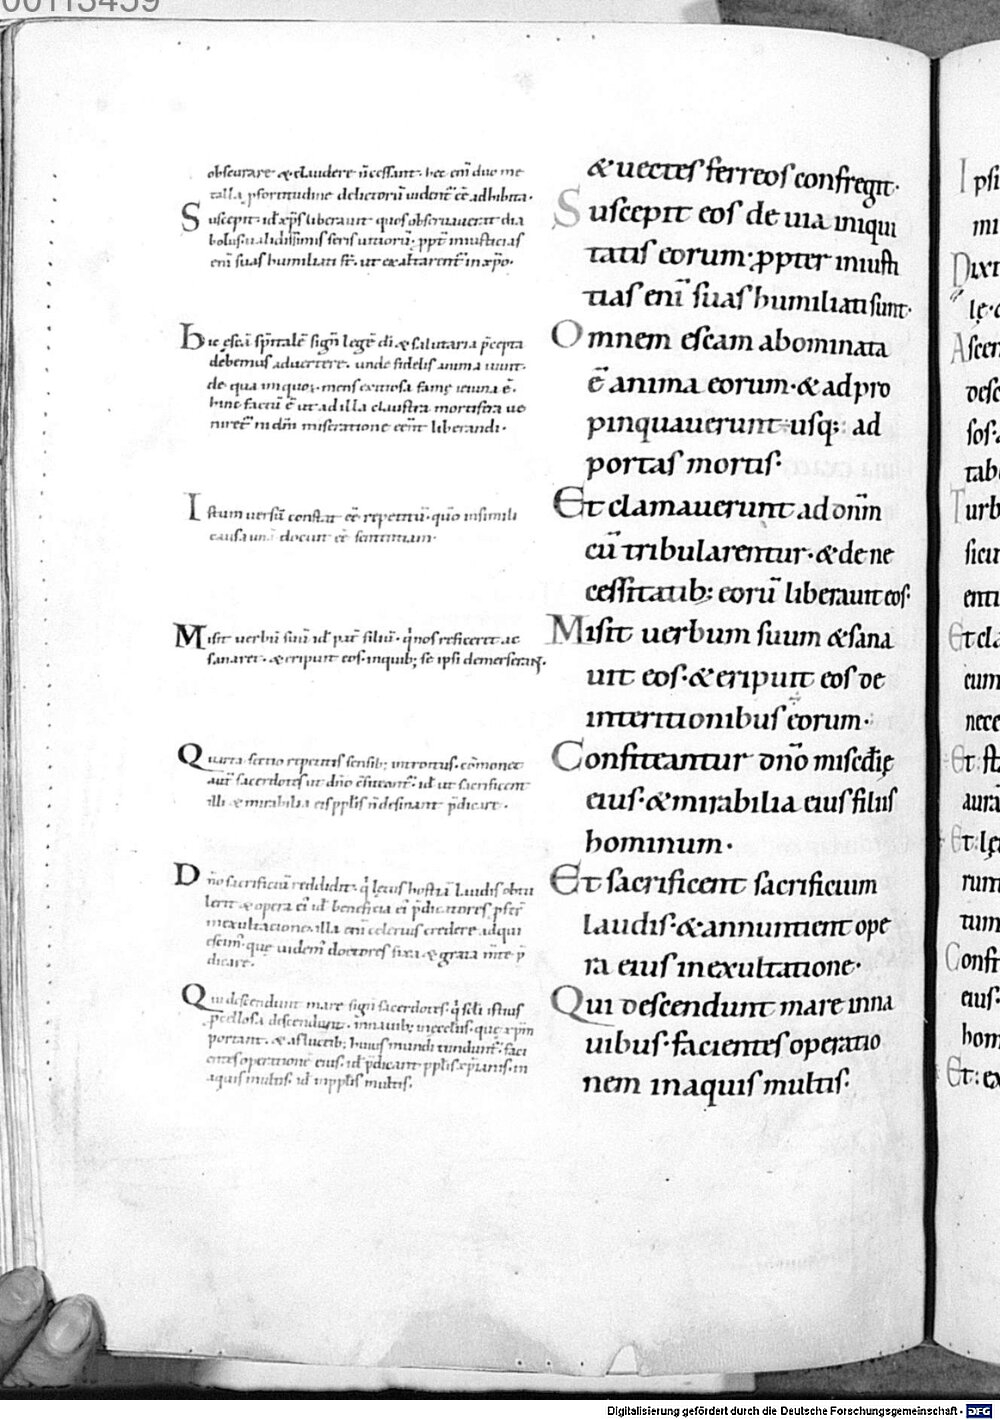 00113459
obscurare & claudere n̄ cessant· hec eni͂ duo me
talla ꝓ fortitudine delictorū uident̄ ēē adhibita·
Suscepit· id xp̄s liberauit quos obseruauerat dia
bolus· ualidissimis seris uitiorū· ꝓpt̄ iniusticias
eni͂ suas humiliati st̄· ut exaltarent̄ in xp̄o·
Hic escā sp̄italē signū legē di͂ & salutaria p̄cepta
debemus aduertere· unde fidelis anima uiuit·
de qua iniquoꝝ· mens exitiosa fame ieiuna ē·
hinc factū ē ut ad illa claustra mortifera ue
nirent̄ ni dn̄i miseratione eēnt liberandi·
Istum uersū constat ēē repetitū· quō in simili
causa docuit ēē sententiam·
Misit uerbū suū id pat̄ filiū· q̄ nos reficeret ac
sanaret· & eripuit eos· inquib; se ipsi demerserant·
Quarta sectio repetitis sensib; introitus· cōmonet
aut̄ sacerdotes ut dn̄o cōfiteant̄· id ut sacrificent
illi & mirabilia ei͂ ppl̄is n̄ desinant p̄dicare·
Dn̄o sacrificiū reddidit· q̄ letus hostiā laudis obtu
lerit & opera ei͂ id beneficia ei͂ p̄dicatores ꝓfer̄
in exultatione· illa eni͂ celerius credere adqui
escim͂· que uidem͂ doctores fixa & grata m̄te p̄
dicare·
Qui descendunt mare signt̄ sacerdotes· q̄ sc̄li istius
ꝓcellosa descendunt· in nauib; in eccl̄iis· que xp̄m
portant· & a fluctib; huius mundi tundunt̄· faci
entes operationē eius· id p̄dicant ppl̄is xp̄ianis· in
aquis multis· id in ppl̄is multis·
& uectes ferreos confregit·
Suscepit eos de uia iniqui
tatis eorum· ꝓpter iniusti
tias eni͂ suas humiliati sunt·
Omnem escam abominata
ē anima eorum· & adpro
pinquauerunt usq; ad
portas mortis·
Et clamauerunt ad dn̄m
cū tribularentur· & de ne
cessitatib; eorū liberauit eos·
Misit uerbum suum & sana
uit eos· & eripuit eos de
interitionibus eorum·
Confiteantur dn̄o misc̄dię
eius· & mirabilia eius filiis
hominum·
Et sacrificent sacrificium
laudis· & annuntient ope
ra eius in exultatione·
Qui descendunt mare in na
uibus· facientes operatio
nem in aquis multis·
Ipsi
mi
Dixi
lę·
Ascen
desc
sos·
tab
Turb
sicu
enti
Et cla
cum
nece
Et st
aura
Et lę
rum
tum
Confi
eius·
hom
Et ex
Digitalisierung gefördert durch die Deutsche Forschungsgemeinschaft - DFG